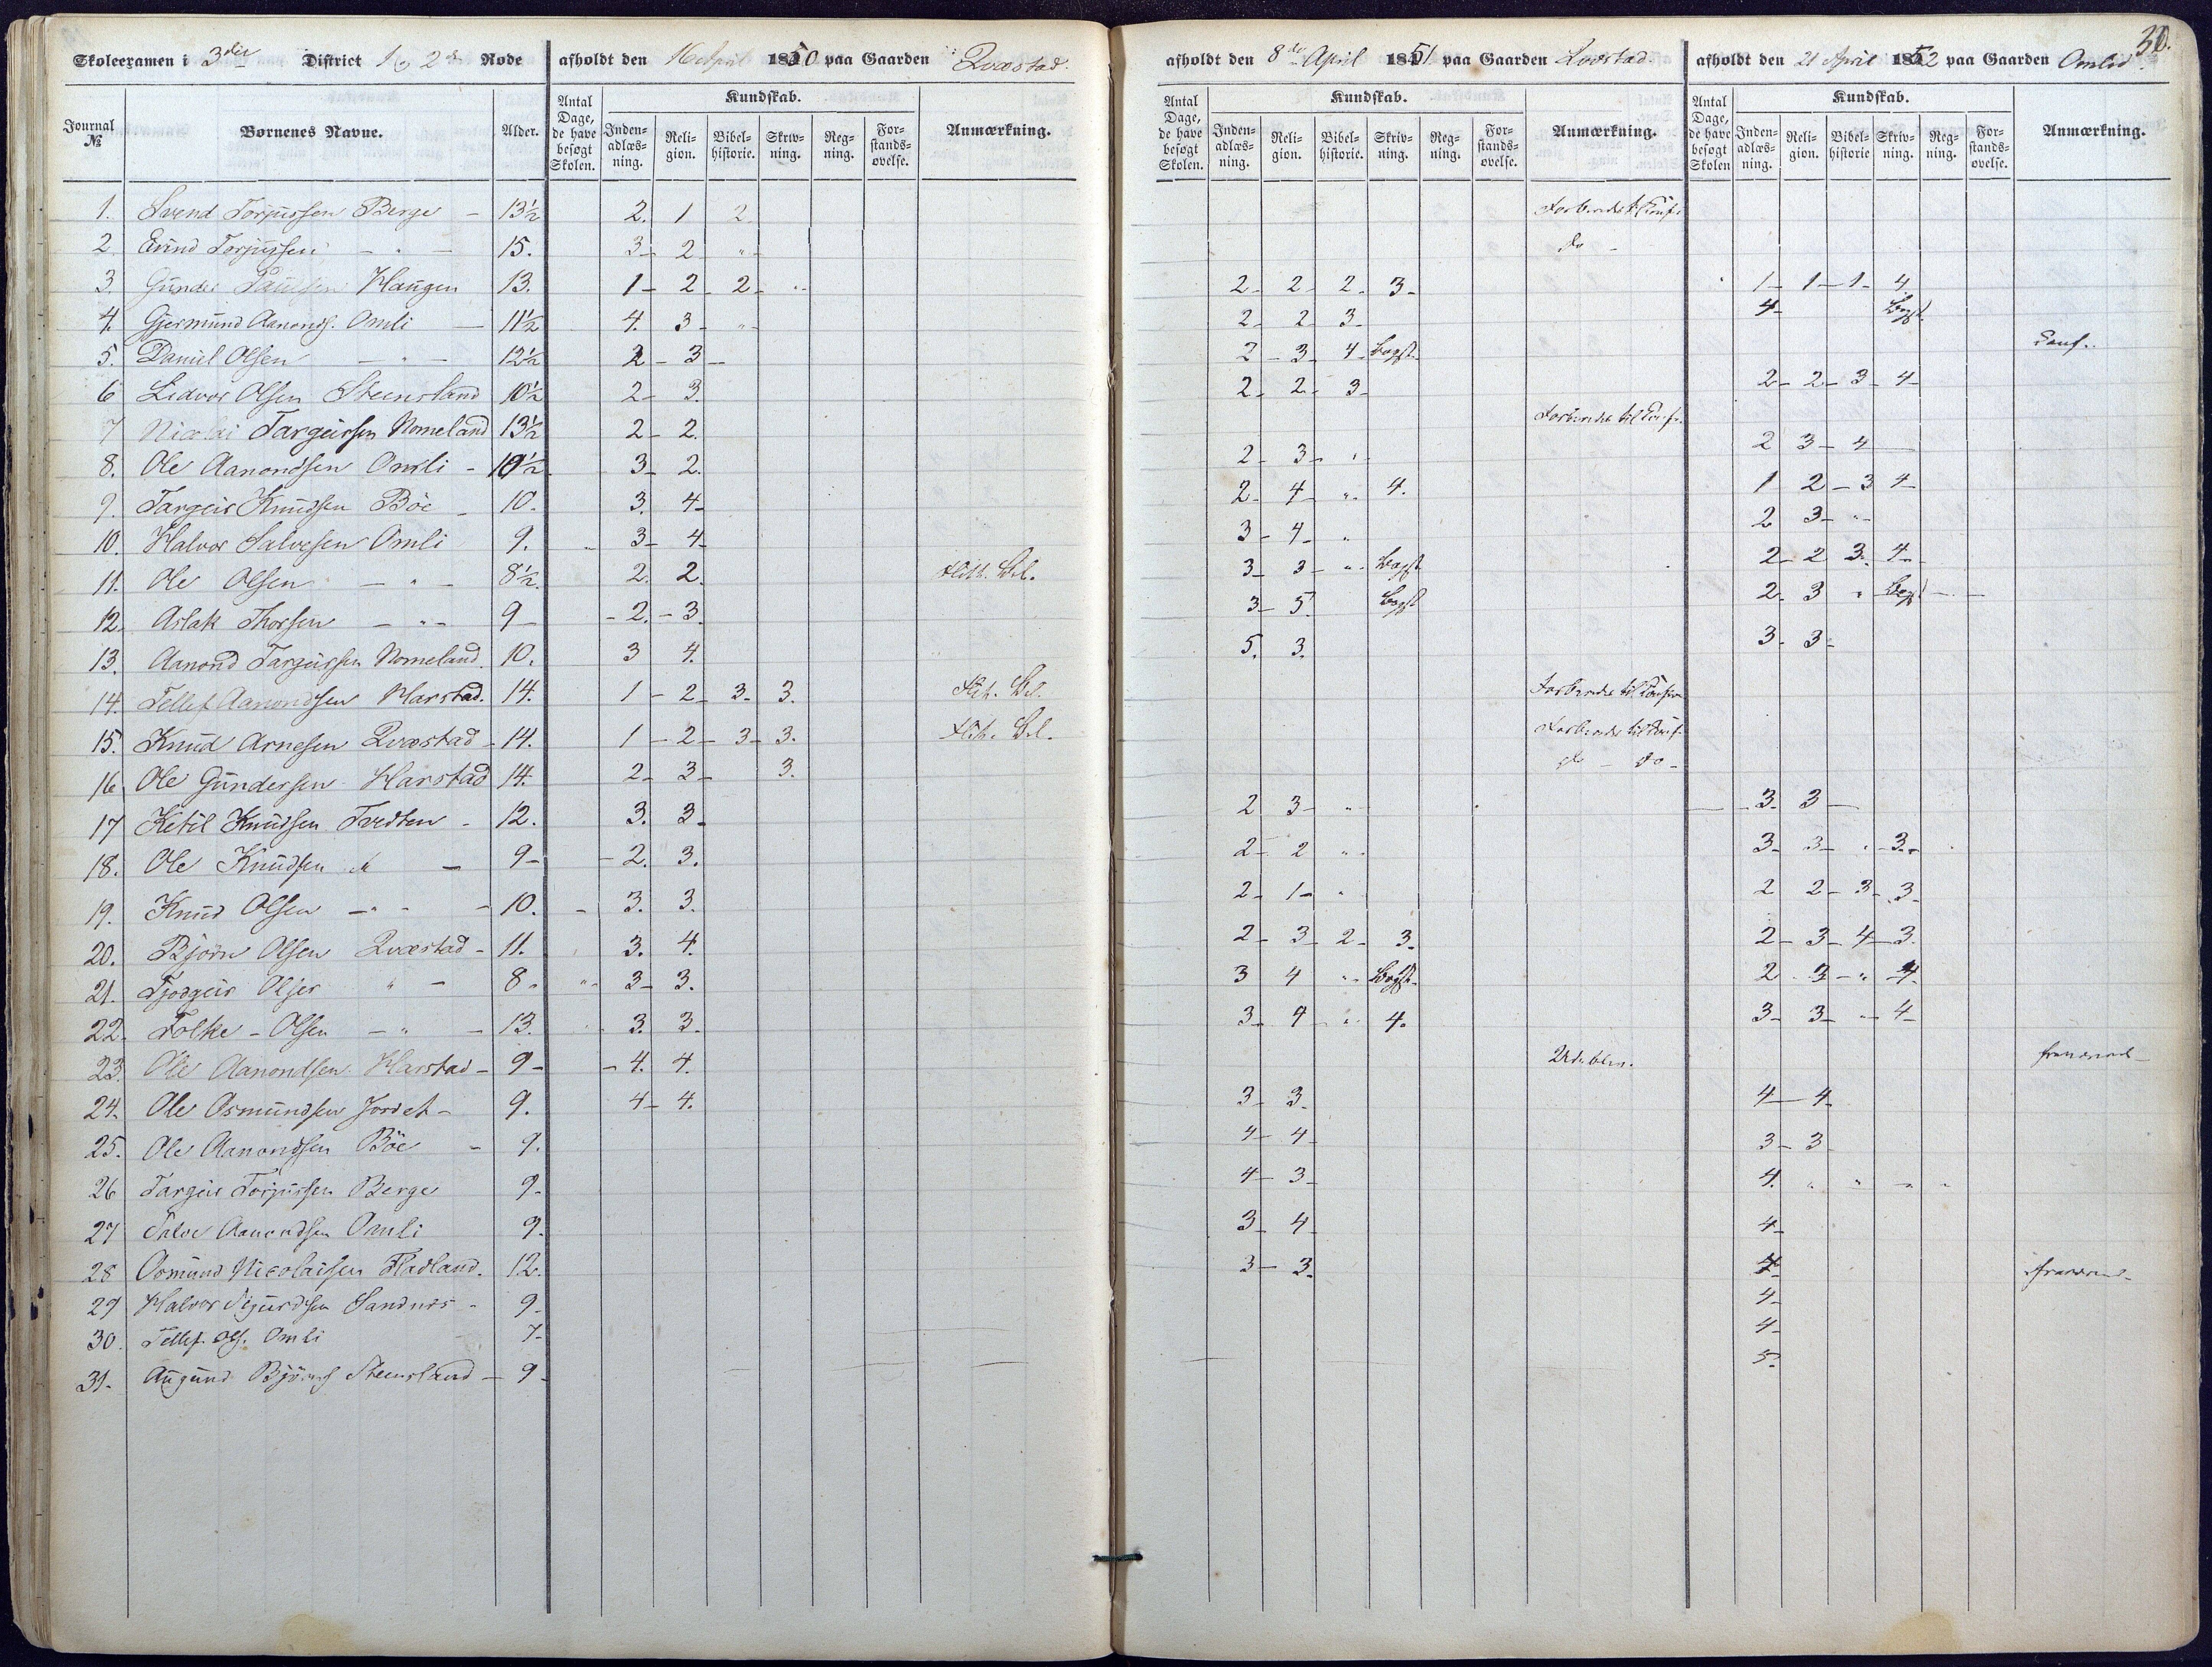 30.
Skoleexamen i 3die District 1 og 2den Rode afholdt den 16 April 1850 paa Gaarden Qvæstad. afholdt den 8de April 1851 paa Gaarden Qvæstad. afholdt den 21 April 1852 paa Gaarden Omlid.
Journal № Børnenes Navne. Alder. Antal Dage, de have besøgt Skolen. Kundskab. Indenadlæsning. Religion. Bibelhistorie. Skrivning. Regning. Forstandsøvelse. Anmærkning. Antal Dage, de have besøgt Skolen. Kundskab. Indenadlæsning. Religion. Bibelhistorie. Skrivning. Regning. Forstandsøvelse. Anmærkning. Antal Dage, de have besøgt Skolen Kundskab. Indenadlæsning. Religion. Bibelhistorie Skrivning. Regning. Forstandsøvelse. Anmærkning.
1. Svend Torjussen Berge - 13½ 2. 1 2 Forberedes t. Conf.
2. Eivind Torjussen - " - 15. 3- 2 "- do -
3. Gunder Paulsen Haugen 13. 1- 2- 2- " 2- 2- 2- 3- 1- 1- 1- 4.
4. Gjermund Aanonds. Omli - 11½ 4. 3- "- 2- 2- 3- 4- Bogst.
5. Daniel Olsen - " - 12½ 2- 3- 2- 3- 4- Bogst. Conf.
6 Lidvor Olsen Steensland 10½ 2- 3. 2- 2- 3- 2- 2- 3- 4-
7 Nicolai Targeirsen Nomeland 13½ 2- 2. Forberedes til Conf.
8. Ole Aanondsen Omli - 10½ 3- 2. 2- 3- " 2 3- 4
9. Targeir Knudsen Böe - 10. 3. 4- 2- 4- "- 4. 1 2- 3 4-
10. Halvor Salvesen Omli 9. 3- 4- 3- 4- " 2 3- "-
11. Ole Olsen - " - 8½. 2. 2. Flith. Bel. 3- 3- "- Bogst 2- 2 3. 4-
12. Aslak Thorsen - " - 9- - 2.- 3. 3- 5. Bogst 2- 3 " Bogst
13. Aanond Targeirssen Nomeland. 10. 3 4. 5. 3. 3- 3-
14. Tellef Aanondsen Harstad. 14. 1- 2- 3- 3. Flith. Bel. Forberedes til Confirm
15. Knud Arnesen Qvæstad - 14. 1- 2- 3- 3. Flith. Bel. Forberedes til Conf.
16 Ole Gundersen Harstad 14. 2- 3- 3. do - do -
17 Ketil Knudsen Tvedten - 12. 3. 3- 2 3- " 3- 3-
18. Ole Knudsen " - 9- - 2. 3. 2- 2 "- 3- 3- " 3-
19. Knud Olsen - " - 10. - 3. 3. 2- 1- " 2 2- 3- 3-
20. Björn Olsen Qvæstad - 11. 3. 4. 2- 3- 2- 3. 2- 3- 4- 3.
21. Tjodgeir Olsen " - 8- "- 3- 3. 3 4 "- Bogst. 2- 3- " 4.
22. Folke - Olsen - " - 13. 3. 3- 3- 4- " 4. 3- 3- "- 4-
23. Ole Aanondsen Harstad - 9- - 4. 4. Udebleven. fraværend-
24. Ole Osmundsen Jordet - 9. 4- 4. 3- 3- 4- 4-
25. Ole Aanondsen Böe - 9. 4- 4- 3- 3
26 Targeir Torjussen Berge 9. 4- 3- 4. " " - "
27 Salve Aanondsen Omli 9. 3- 4- 4-
28 Osmund Nicolaisen Fladland. 12. 3- 3. 4- fraværend-
29 Halvor Sigurdsen Sandnes - 9- 4-
30. Tellef Ols. Omli 7- 4-
31. Augund Björns Steensland - 9- 5.